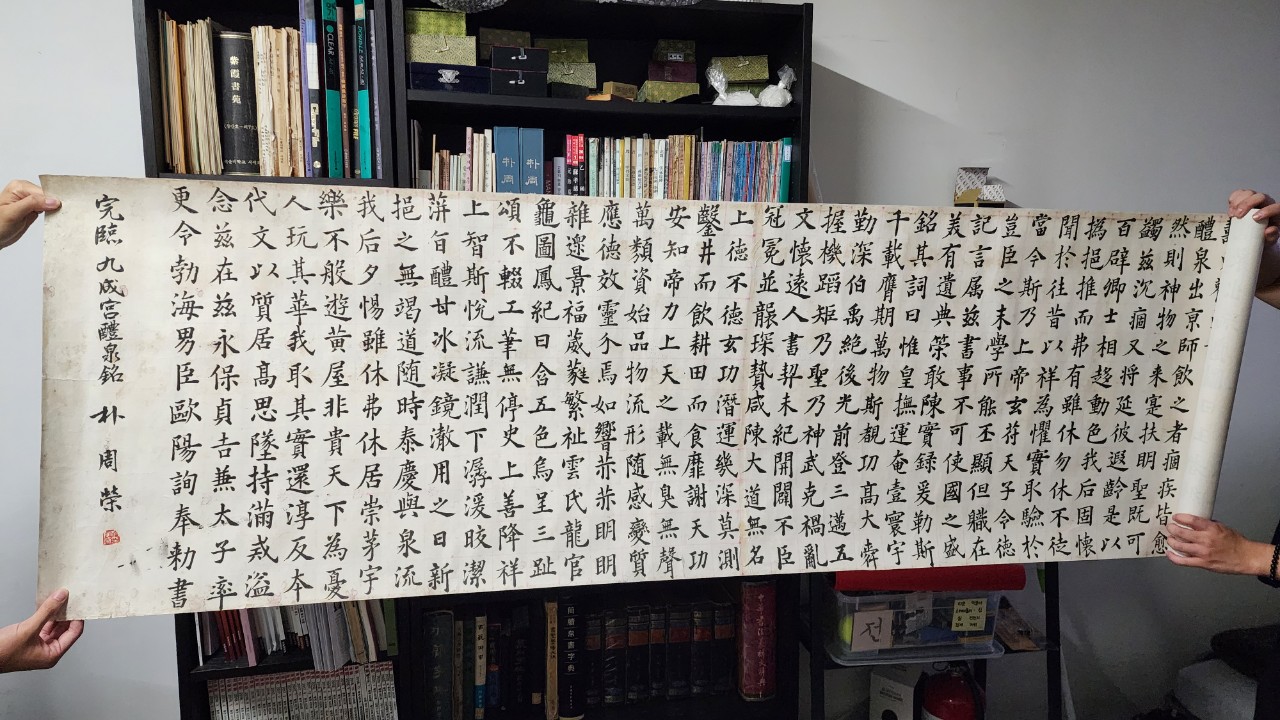 醴泉出京師飲之者痼疾皆愈
然則神物之来寔扶明聖既可
蠲兹沉痼又将延彼遐齡是以
百辟卿士相趍動色我后固懷
撝挹推而弗有雖休勿休不徒
聞於往昔以祥為懼實取驗於
當今斯乃上帝玄苻天子令徳
豈臣之末學所能丕顯但職在
記言属兹書事不可使國之盛
美有遺典策敢陳實録爰勒斯
銘其詞曰惟皇撫運奄壹寰宇
千載膺期萬物斯覩功髙大舜
勤深伯禹絶後光前登三邁五
握機蹈矩乃聖乃神武克禍亂
文懷遠人書契未紀開闢不臣
冠冕並襲琛贄咸陳大道無名
上德不德玄功潛運幾深莫測
鑿井而飲耕田而食靡謝天功
安知帝力上天之載無臭無聲
萬類資始品物流形随感變質
應德效靈介焉如響赫赫明明
雜遝景福葳蕤繁祉雲氏龍官
龜圖鳳紀日含五色烏呈三趾
頌不輟工筆無停史上善降祥
上智斯悅流謙潤下潺湲皎潔
蓱旨醴甘冰凝鏡澈用之日新
挹之無竭道随時泰慶與泉流
我后夕惕雖休弗休居崇茅宇
樂不般遊黃屋非貴天下為憂
人玩其華我取其實還淳反本
代文以質居髙思墜持滿戒溢
念兹在兹永保貞吉兼太子率
更令勃海男臣歐陽詢奉勅書
完臨九成宮醴泉銘 朴周榮
紫霞書苑
CLEAR
朴周
朴周
전